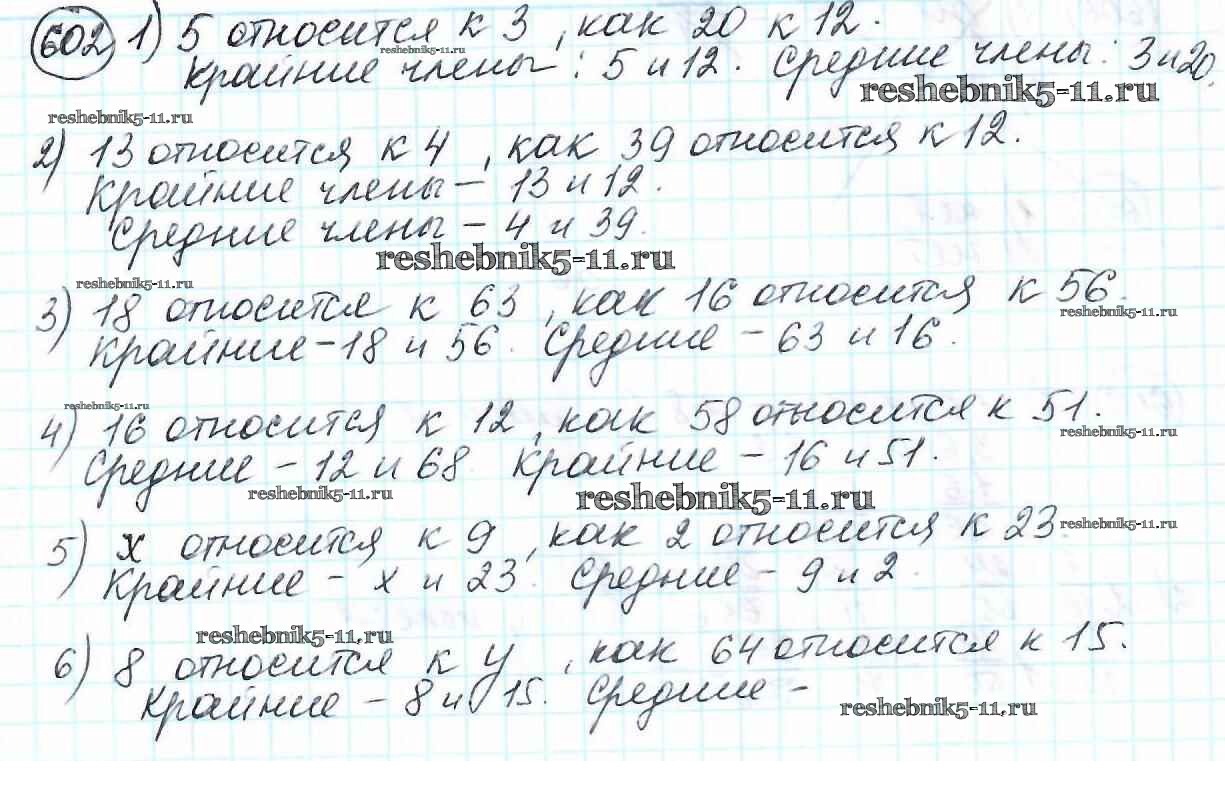 602 1) 5 относится к 3, как 20 к 12.
reshebnik5-11.ru
Крайние члены: 5 и 12. Средние члены: 3 и 20.
reshebnik5-11.ru
reshebnik5-11.ru
2) 13 относится к 4, как 39 относится к 12.
Крайние члены – 13 и 12.
Средние члены – 4 и 39.
reshebnik5-11.ru
reshebnik5-11.ru
3) 18 относится к 63, как 16 относится к 56.
reshebnik5-11.ru
Крайние – 18 и 56. Средние – 63 и 16.
reshebnik5-11.ru
4) 16 относится к 12, как 58 относится к 51.
reshebnik5-11.ru
Средние – 12 и 68. Крайние – 16 и 51.
reshebnik5-11.ru
reshebnik5-11.ru
5) х относится к 9, как 2 относится к 23.
reshebnik5-11.ru
Крайние – х и 23. Средние – 9 и 2.
reshebnik5-11.ru
6) 8 относится к у, как 64 относится к 15.
Крайние – 8 и 15. Средние –
reshebnik5-11.ru